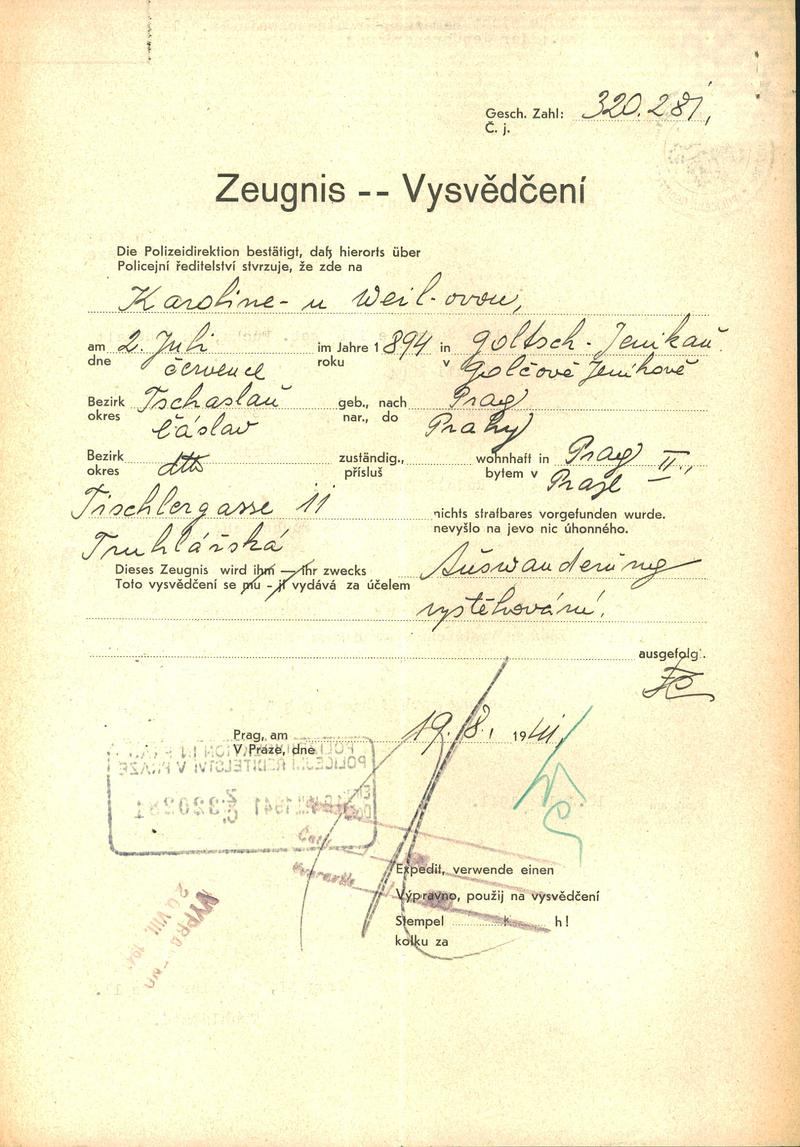 Gesch. Zahl: 320.281,
Č. j.
Zeugnis -- Vysvědčení
Die Polizeidirektion bestätigt, daß hierorts über
Policejní ředitelství stvrzuje, že zde na
Karoline- u Weil-ovou,
am 2. Juli im Jahre 1894 in Goltsch-Jenikau
dne července roku v Golčově Jeníkově
Bezirk Tschaslau geb., nach Prag
okres Čáslav nar., do Prahy
Bezirk dtto zuständig., wohnhaft in Prag II.,
okres přísluš bytem v Praze
Tischlergasse 11 nichts strafbares vorgefunden wurde.
nevyšlo na jevo nic úhonného.
Truhlářská
Dieses Zeugnis wird ihm — ihr zwecks Auswanderung
Toto vysvědčení se mu - jí vydává za účelem
vystěhování.
ausgefolg.
Prag, am 19./8. 1941
V Praze, dne
POLICEJNÍ ŘEDITELSTVÍ V PRAZE
1941 320281
Expedit, verwende einen
Výpravno, použij na vysvědčení
Stempel K h!
kolku za
20. VIII. 194